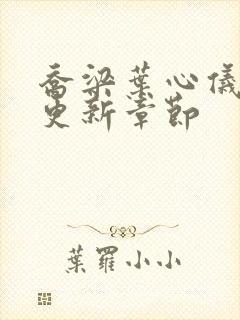 喬梁葉心儀
更新章節
葉羅小小